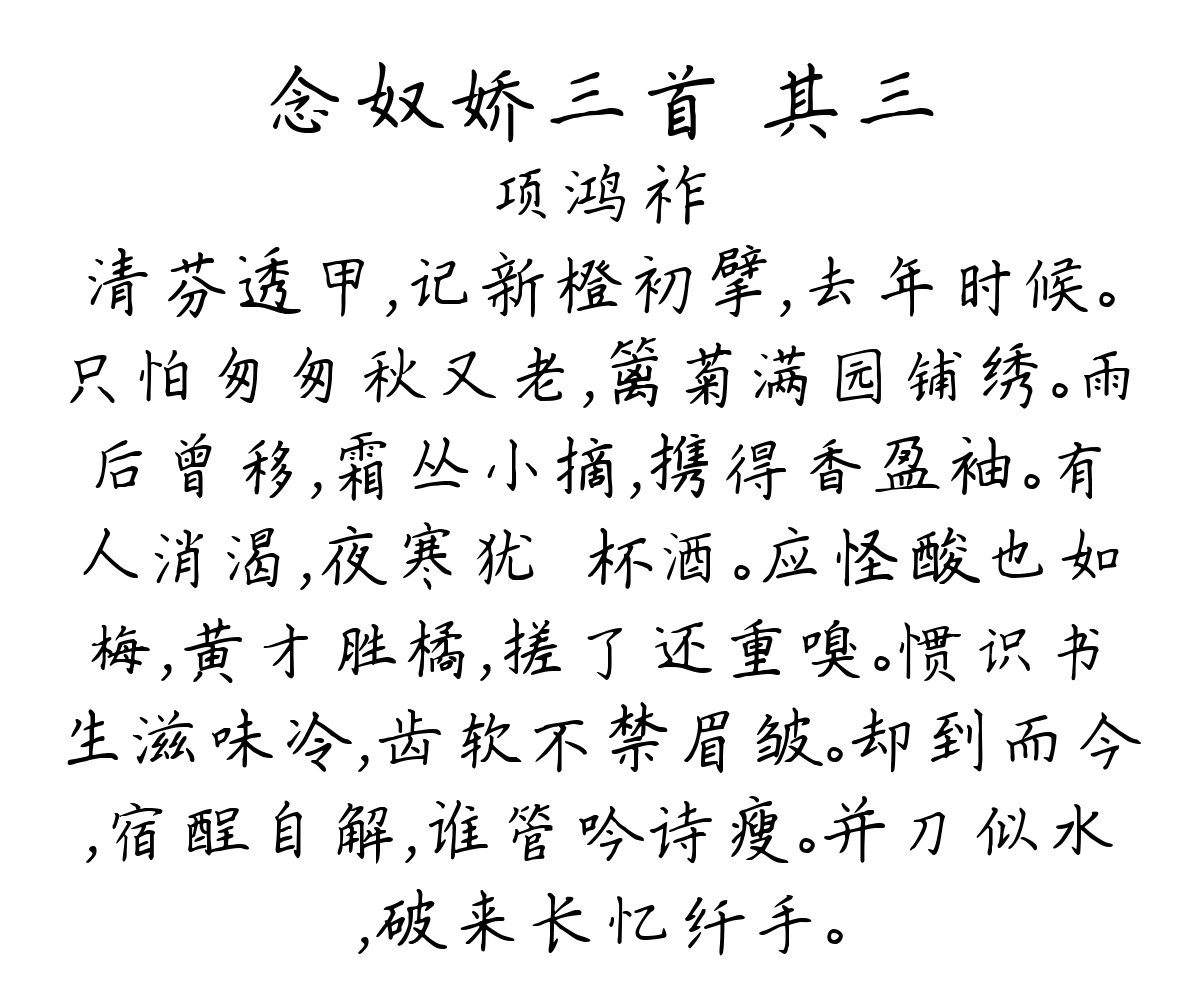 念奴娇三首 其三
项鸿祚
清芬透甲,记新橙初擘,去年时候。
只怕匆匆秋又老,篱菊满园铺绣。雨
后曾移,霜丛小摘,携得香盈袖。有
人消渴,夜寒犹 杯酒。应怪酸也如
梅,黄才胜橘,搓了还重嗅。惯识书
生滋味冷,齿软不禁眉皱。却到而今
,宿酲自解,谁管吟诗瘦。并刀似水
,破来长忆纤手。